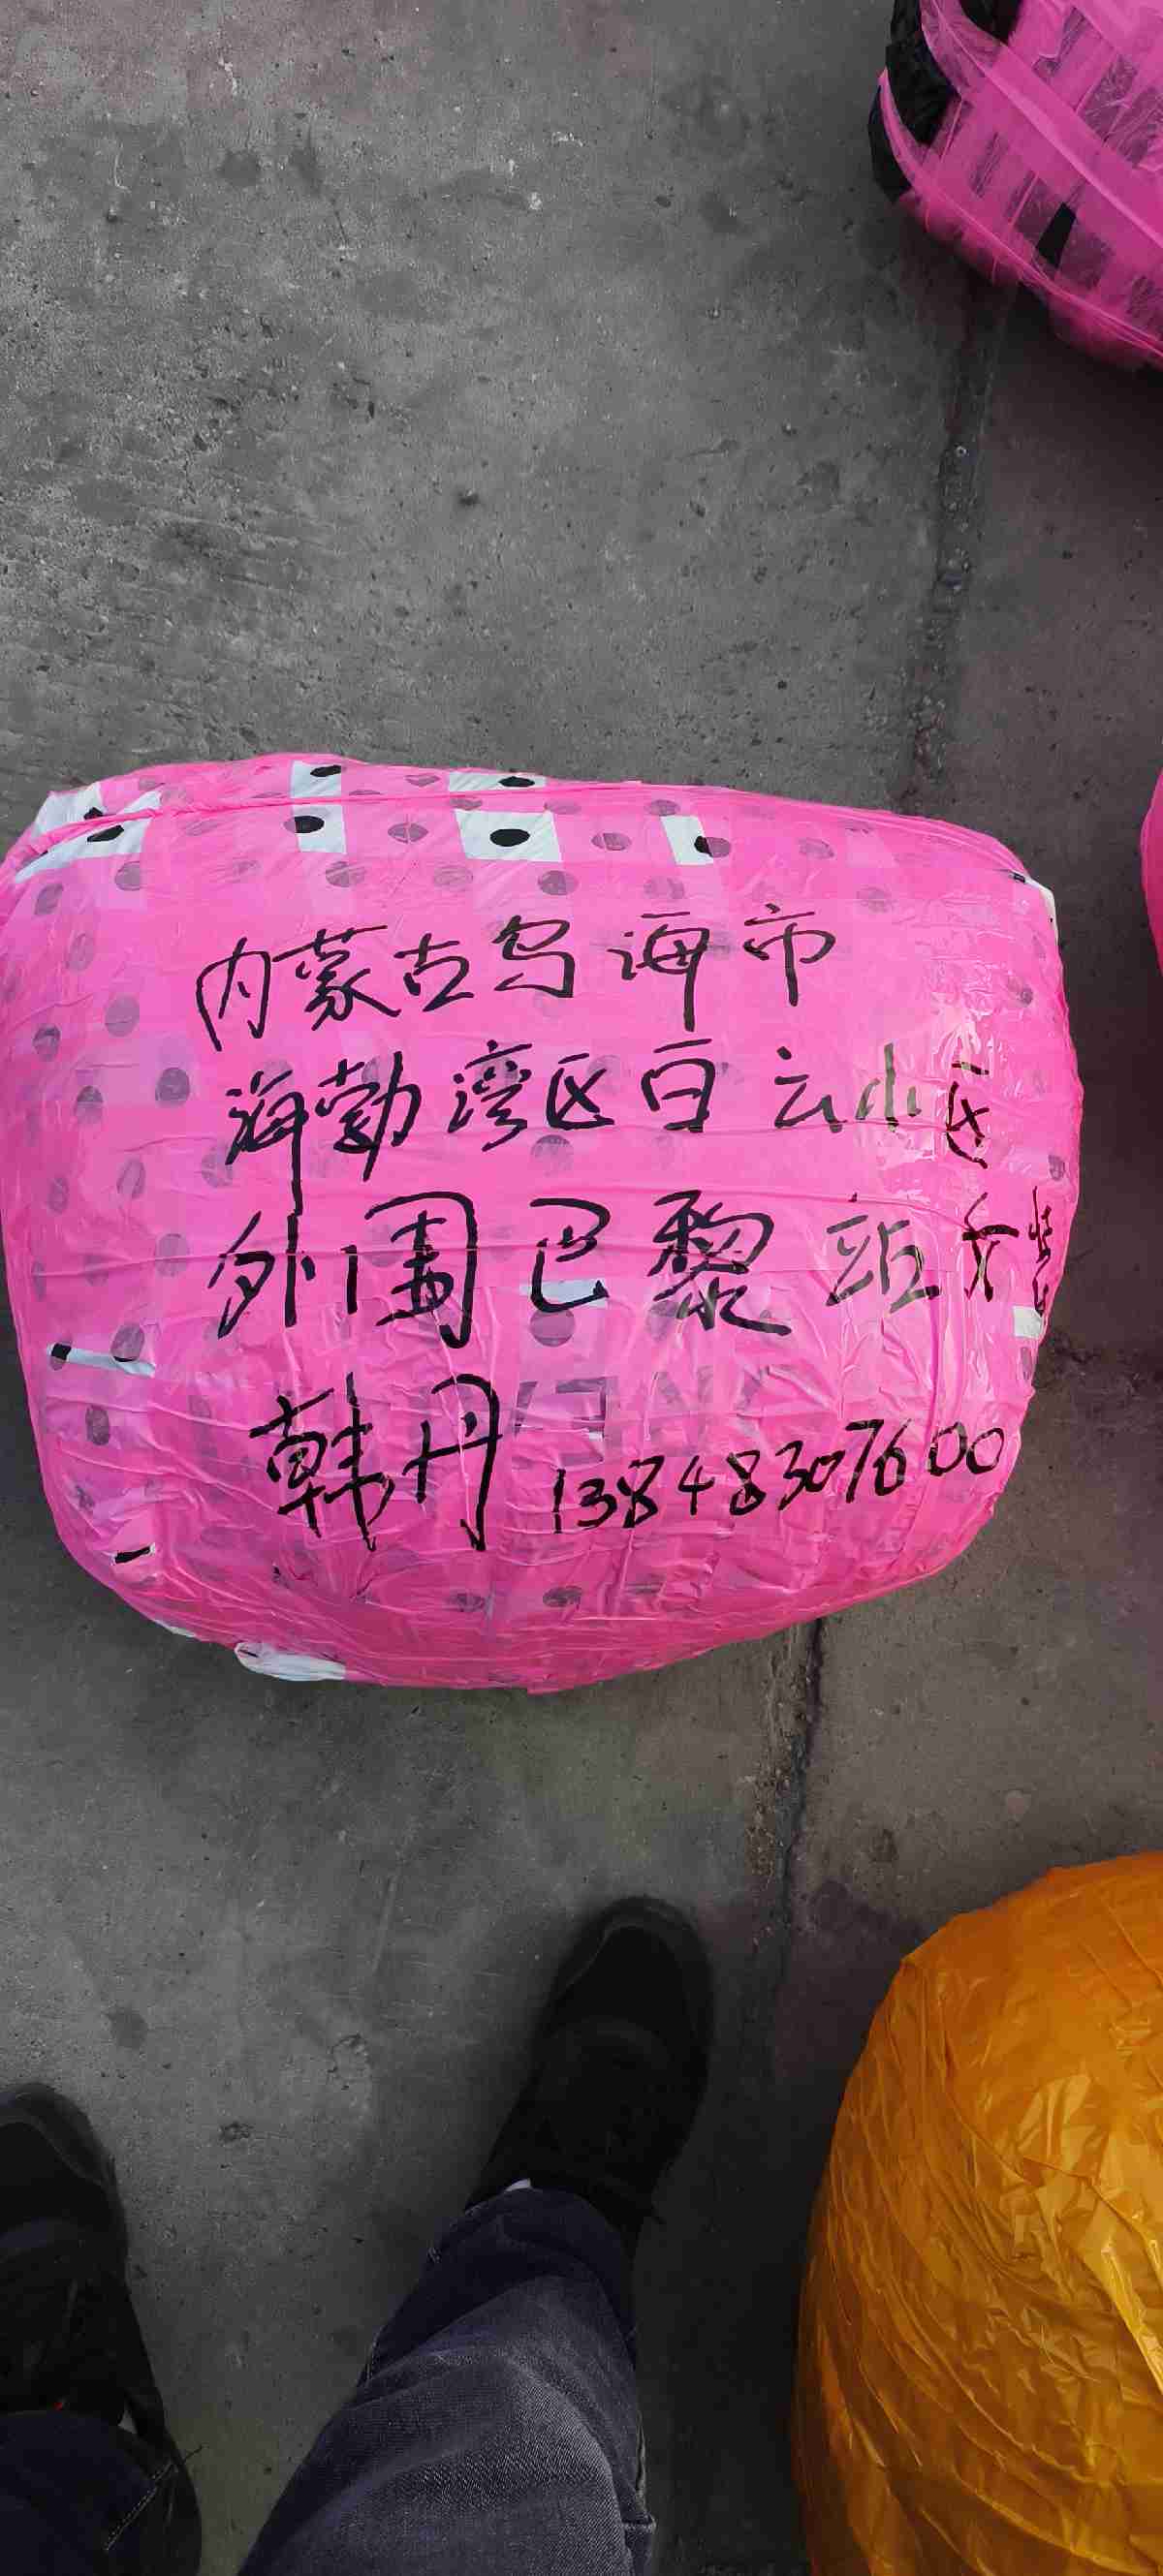 内蒙古乌海市
海勃湾区百云小区
外围巴黎站女装
韩丹 13848307600